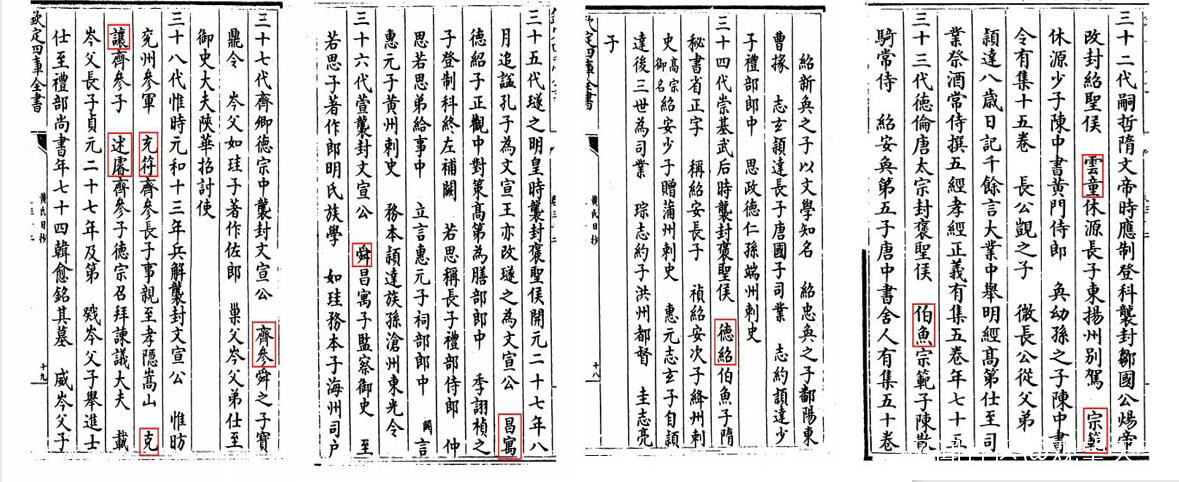 三十二代嗣哲隋文帝時應制登科襲封鄒國公煬帝
改封紹聖侯 雲童休源長子東揚州别駕 宗範
休源少子陳中書黄門侍郎 奐幼孫之子陳中書
令有集十五卷 長公覬之子 徽長公從父弟
頴達八歲日記千餘言大業中舉明經髙第仕至司
業祭酒常侍撰五經孝經正義有集五卷年七十五
三十三代德倫唐太宗封褒聖侯 伯魚宗範子陳散
騎常侍 紹安奐第五子唐中書舍人有集五十卷
紹新奐之子以文學知名 紹忠奐之子鄱陽東
曹掾 志玄頴達長子唐國子司業 志約頴達少
子禮部郎中 思政德仁孫端州刺史
三十四代崇基武后時襲封褒聖侯 德紹伯魚子隋
秘書省正字 稱紹安長子 禎紹安次子絳州刺
史 高宗御名紹安少子贈蒲州刺史 惠元志玄子自頴
達後三世為司業 琮志約子洪州都督 圭志亮
子
欽定四庫全書
黄氏日抄
十八
三十五代璲之明皇時襲封褒聖侯開元二十七年八
月追諡孔子為文宣王亦改璲之為文宣公 昌寓
德紹子正觀中對策髙第為膳部郎中 季詡禎之
子登制科終左補闕 若思稱長子禮部侍郎 仲
思若思弟給事中 立言惠元子祠部郎中 闕言
惠元子黄州刺史 務本頴達族孫滄州東光令
三十六代萱襲封文宣公 舜昌寓子監察御史 至
若思子著作郎明氏族學 如珪務本子海州司户
三十七代齊卿德宗中襲封文宣公 齊參舜之子寳
鼎令 岑父如珪子著作佐郎 巢父岑父弟仕至
御史大夫陝華招討使
三十八代惟時元和十三年兵解襲封文宣公 惟昉
兖州參軍 克符齊參長子事親至孝隠嵩山 克
讓齊參子 述睿齊參子德宗召拜諫議大夫 載
岑父長子貞元二十七年及第 戣岑父子舉進士
仕至禮部尚書年七十四韓愈銘其墓 威岑父子
欽定四庫全書
黄氏日抄
十九